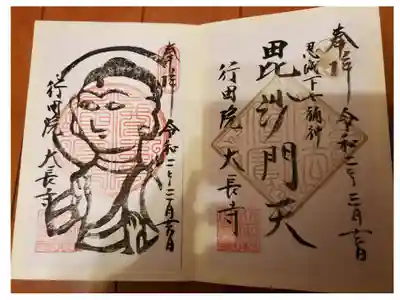 奉拝 令和二年 月 日
忍城下七福神
毘沙門天
行田院 大長寺
奉拝 令和二年 月 日
行田院 大長寺